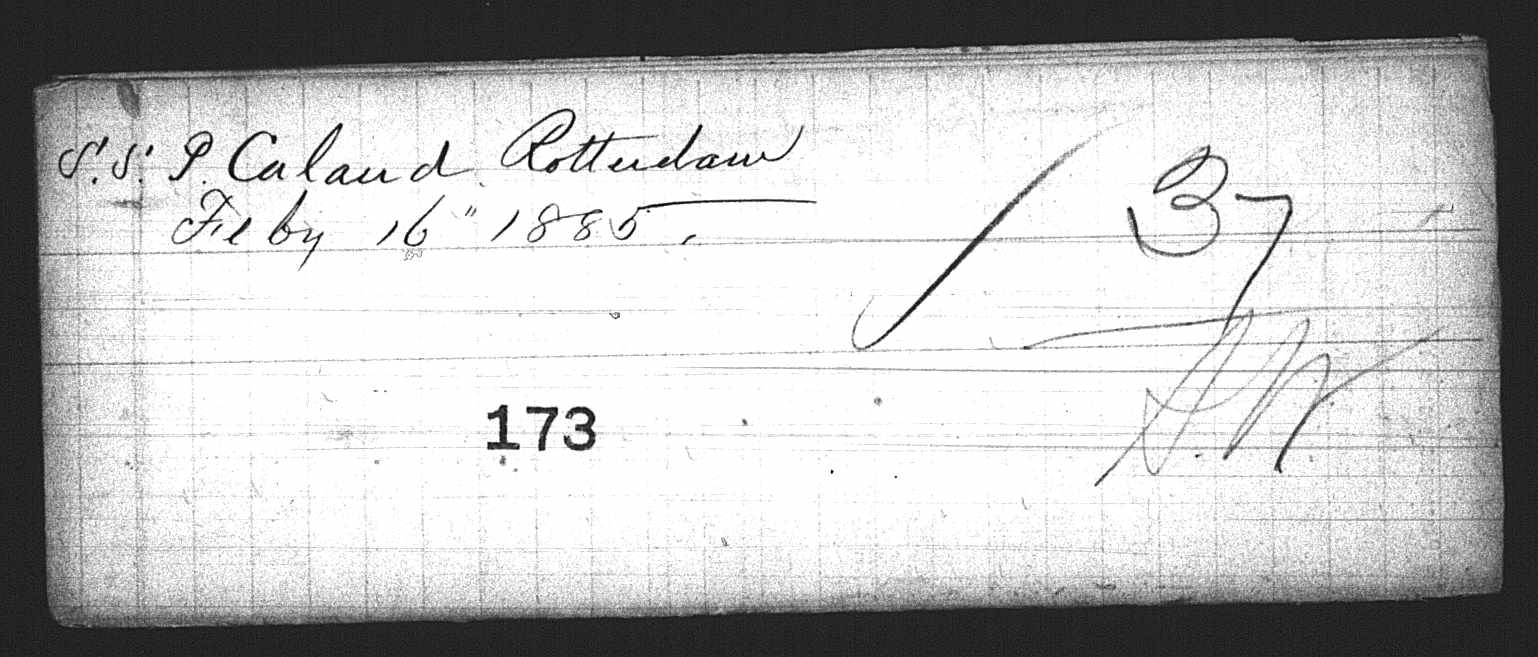 S.S. P. Caland Rotterdam
Feby 16" 1885.
37
173